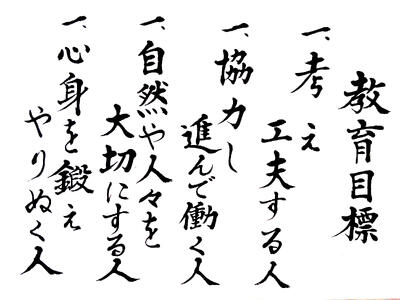 教育目標
一、考え
工夫する人
一、協力し
進んで働く人
一、自然や人々を
大切にする人
一、心身を鍛え
やりぬく人